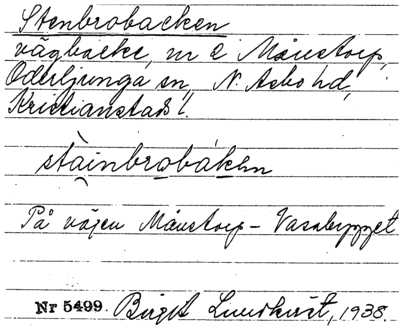 Stenbrobacken
vägbacke, nr 2 Månstorp,
Oderljunga sn, N. Åsbo hd,
Kristianstads l.
stàinbrobákən
På vägen Månstorp – Vasabygget
Nr 5499. Birgit Lundkvist, 1938.